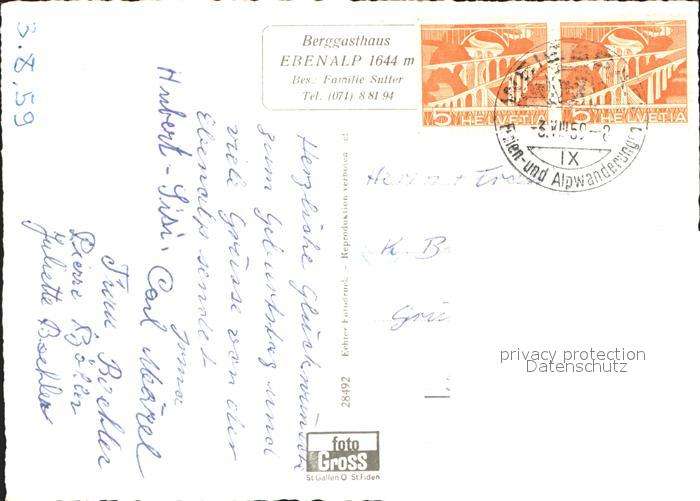 3.8.59
Berggasthaus
EBENALP 1644 m
Bes.: Familie Sutter
Tel. (071) 8 81 94
5 HELVETIA
5 HELVETIA
-3.VIII.59--2
IX
Ferien- und Alpwanderungen
Herzliche Glückwünsche
zum Geburtstag und
viele Grüsse von der
Ebenalp sendet
Irma
Hubert - Sisi. Carl
Boehler
Pierre
Juliette Boehler
28492 Echter Fotodruck - Reproduktion verboten
Herrn + Frau
K. B
foto
Gross
St.Gallen O St.Fiden
privacy protection
Datenschutz